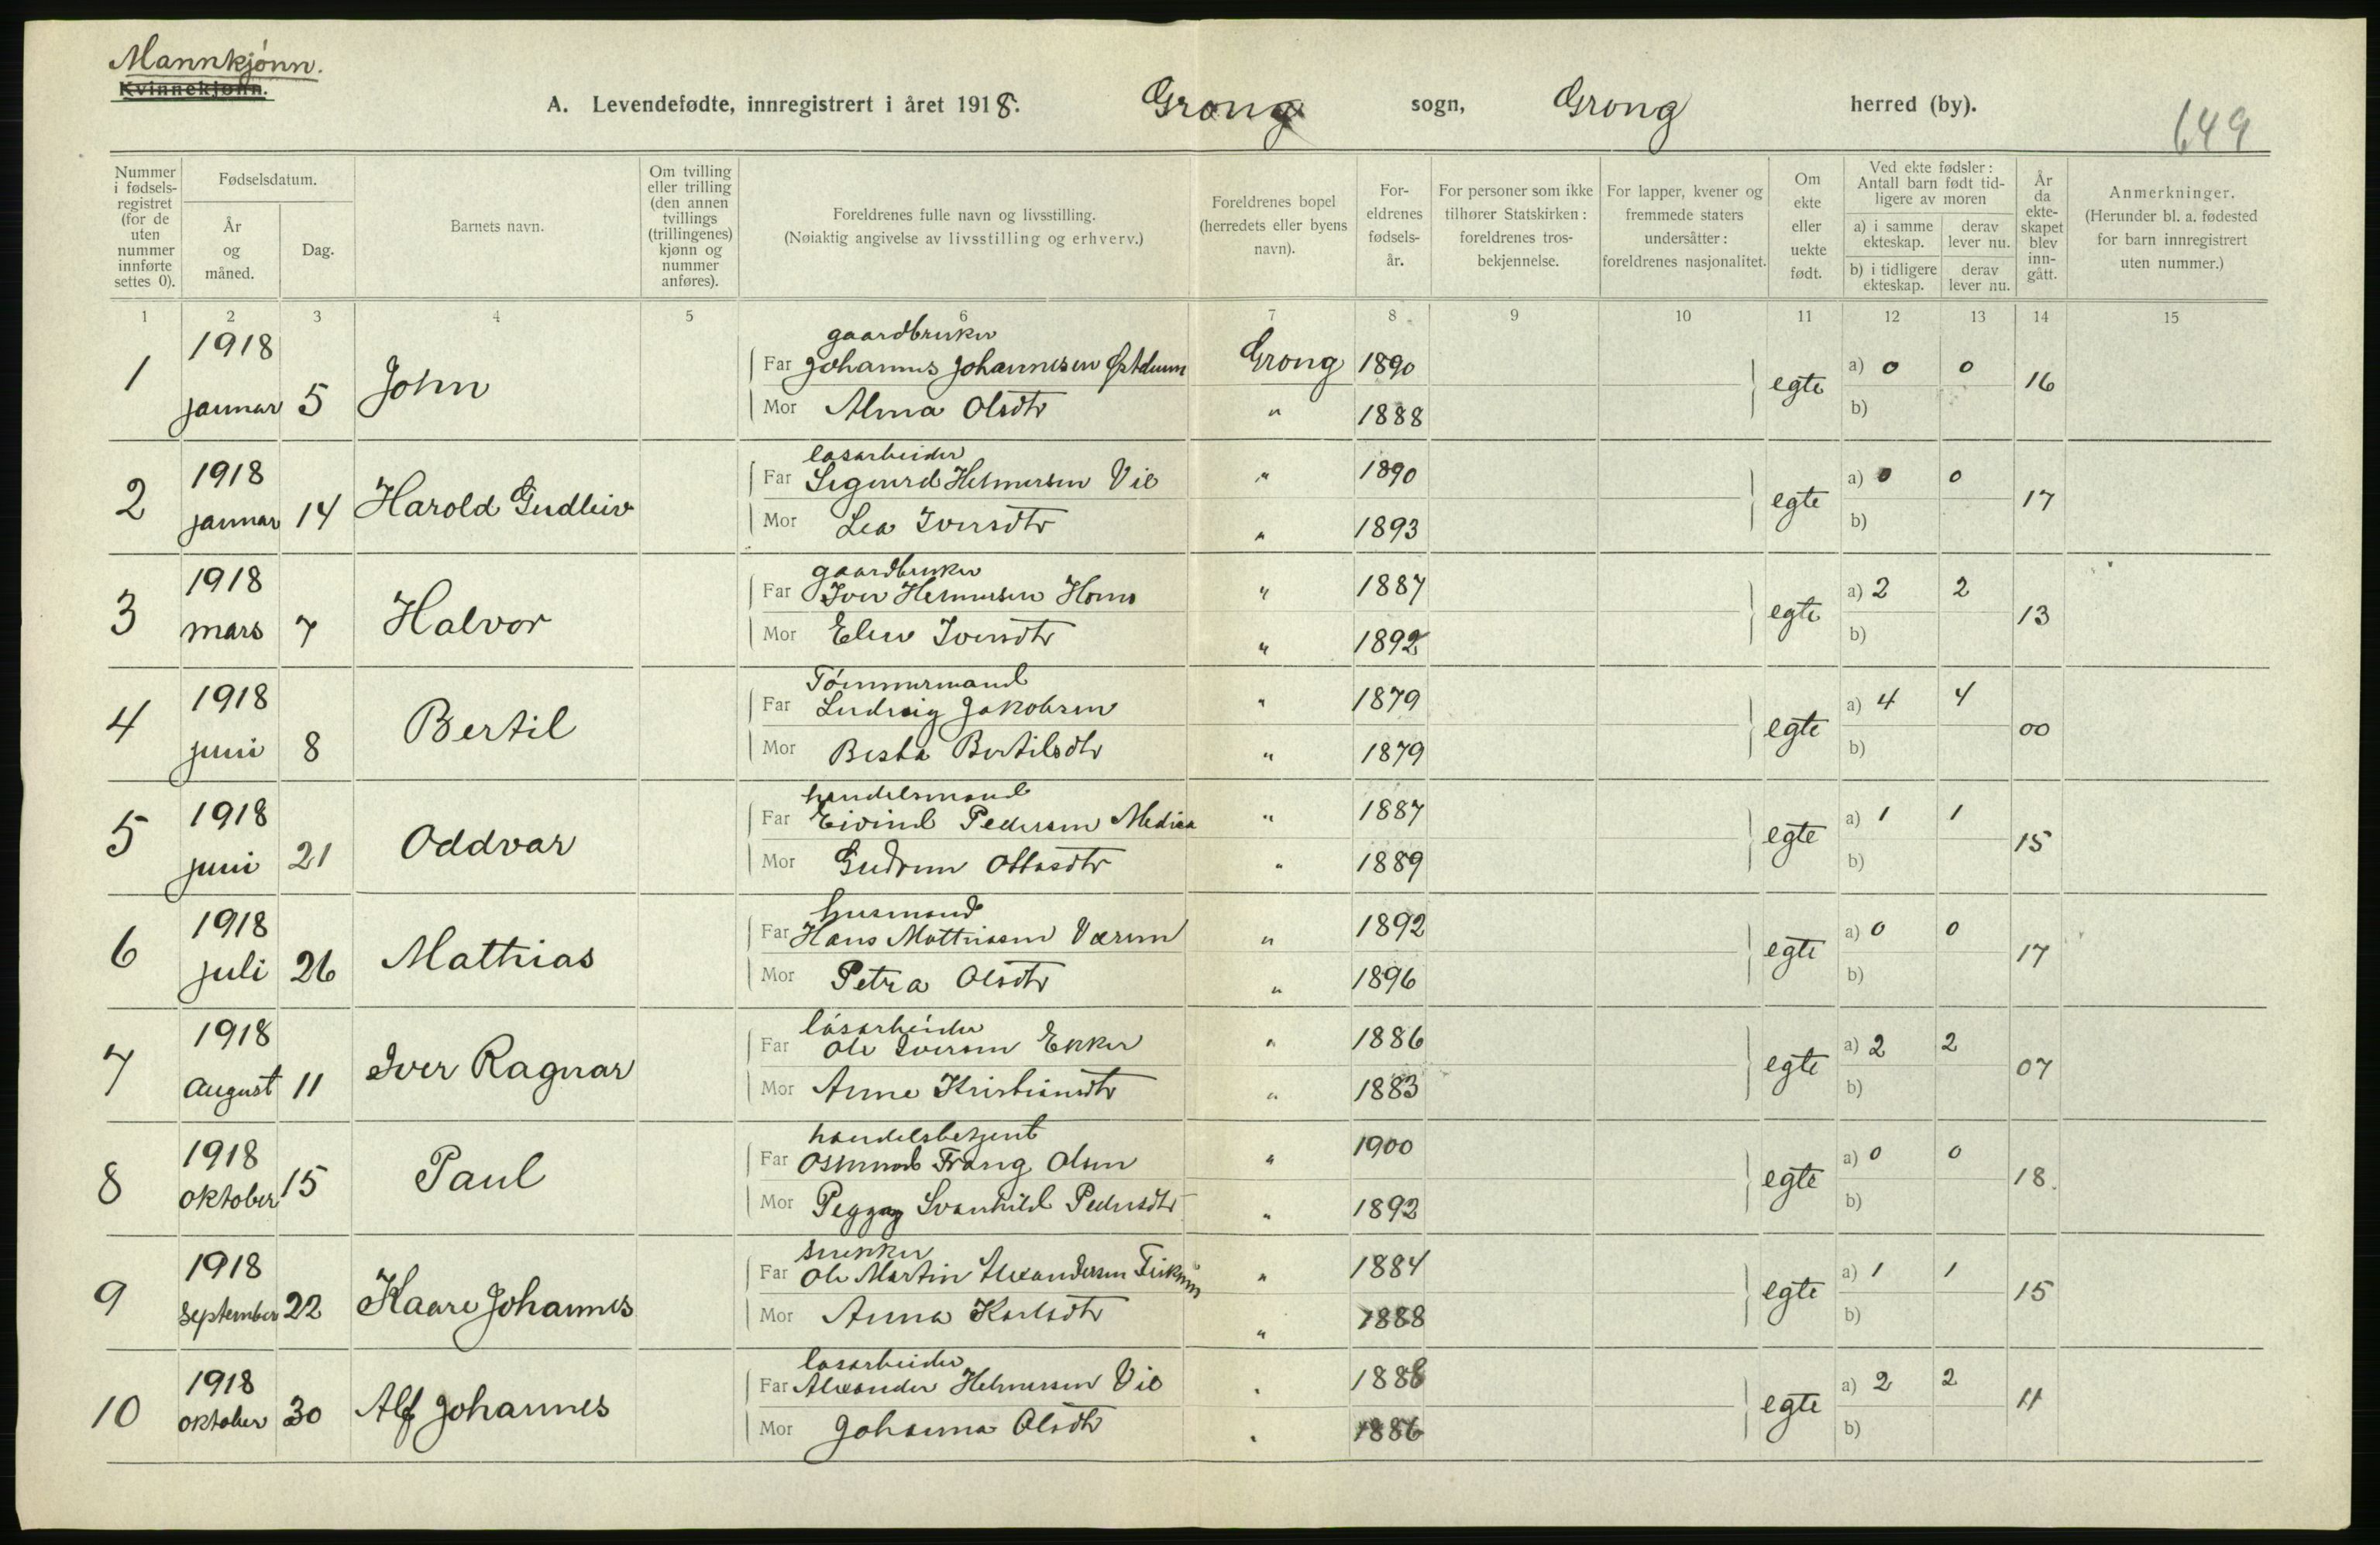 Mannkjønn.
Kvinnekjønn.
A. Levendefødte, innregistrert i året 1918. Grong sogn, Grong herred (by).
649
Nummer i fødsels-registret (for de uten nummer innførte settes 0).
Fødselsdatum.
År og måned.
Dag.
Barnets navn.
Om tvilling eller trilling (den annen tvillings (trillingenes) kjønn og nummer anføres).
Foreldrenes fulle navn og livsstilling.
(Nøiaktig angivelse av livsstilling og erhverv.)
Foreldrenes bopel (herredets eller byens navn).
For-eldrenes fødsels-år.
For personer som ikke tilhører Statskirken: foreldrenes tros-bekjennelse.
For lapper, kvener og fremmede staters undersåtter: foreldrenes nasjonalitet.
Om ekte eller uekte født.
Ved ekte fødsler: Antall barn født tid-ligere av moren
a) i samme ekteskap. derav lever nu.
b) i tidligere ekteskap. derav lever nu.
År da ekte-skapet blev inn-gått.
Anmerkninger.
(Herunder bl. a. fødested for barn innregistrert uten nummer.)
1 2 3 4 5 6 7 8 9 10 11 12 13 14 15
gaardbruker
1 1918 januar 5 John Far Johannes Johannesen Grong 1890 egte a) 0 0 16
Mor Alma Olsdtr " 1888 b)
løsarbeider
2 1918 januar 14 Harold Gudleiv Far Sigurd Helmersen Vie " 1890 egte a) 0 0 17
Mor Lea Iversdtr " 1893 b)
gaardbruker
3 1918 mars 7 Halvor Far Iver Helmersen Homo " 1887 egte a) 2 2 13
Mor Elen Iversdtr " 1892 b)
Tömmermand
4 1918 juni 8 Bertil Far Ludvig Jakobsen " 1879 egte a) 4 4 00
Mor Berta Bertilsdtr " 1879 b)
handelsmand
5 1918 juni 21 Oddvar Far Eivind Pedersen Mediaa " 1887 egte a) 1 1 15
Mor Gudrun Ottosdtr " 1889 b)
husmand
6 1918 juli 26 Mathias Far Hans Mathiasen Værum " 1892 egte a) 0 0 17
Mor Petra Olsdtr " 1896 b)
løsarbeider
7 1918 august 11 Iver Ragnar Far Ole Iversen Ekker " 1886 egte a) 2 2 07
Mor Anne Kristiansdtr " 1883 b)
handelsbetjent
8 1918 oktober 15 Paul Far Osmund Trang Olsen " 1900 egte a) 0 0 18.
Mor Peggy Svanhild Pedersdtr " 1892 b)
snekker
9 1918 september 22 Kaare Johannes Far Ole Martin Alexandersen " 1884 egte a) 1 1 15
Mor Anna Karlsdtr " 1888 b)
løsarbeider
10 1918 oktober 30 Alf Johannes Far Alexander Helmersen Vie " 1888 egte a) 2 2 11
Mor Johanna Olsdtr " 1886 b)